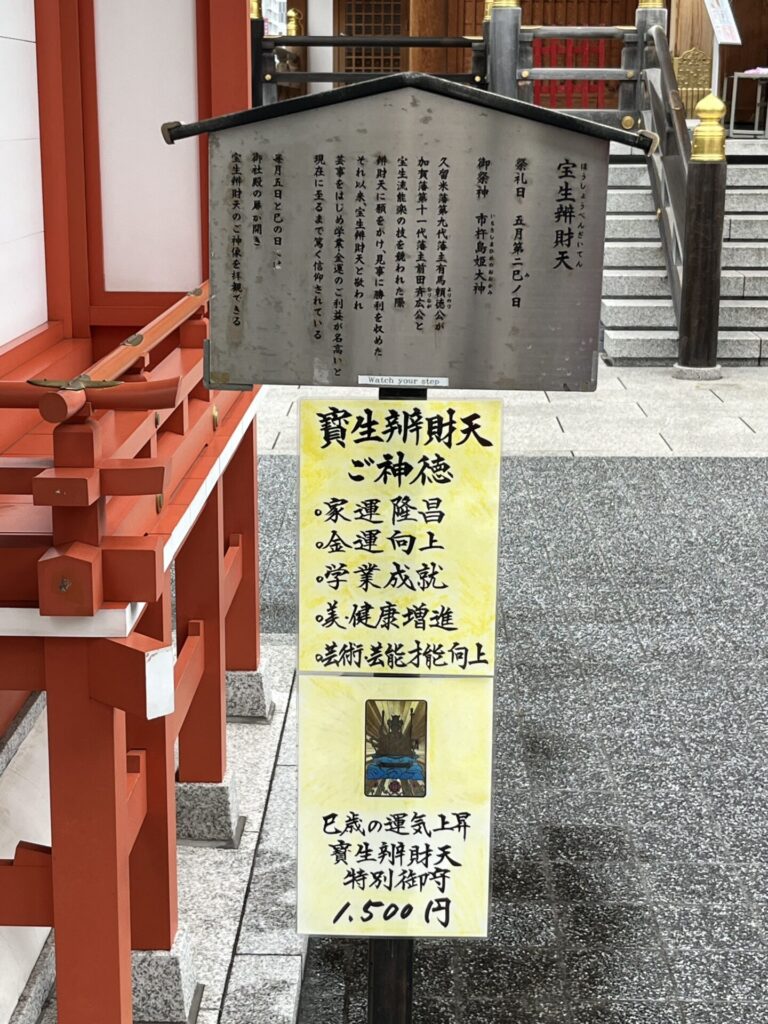 宝生辨財天
ほうしょうべんざいてん
祭礼日 五月第二巳ノ日
み
御祭神 市杵島姫大神
いちきしまひめのおおかみ
久留米藩第九代藩主有馬頼徳公が
よりのり
加賀藩第十一代藩主前田斉広公と
なりなが
宝生流能楽の技を競われた際
辨財天に願をかけ、見事に勝利を収めた
それ以来、宝生辨財天と敬われ
芸事をはじめ学業・金運のご利益が名高いと
現在に至るまで篤く信仰されている
毎月五日と巳の日には
御社殿の扉が開き
宝生辨財天のご神像を拝観できる
Watch your step
寳生辨財天
ご神徳
。家運隆昌
。金運向上
。学業成就
。美・健康増進
。芸術・芸能才能向上
巳歳の運気上昇
寳生辨財天
特別御守
1,500円